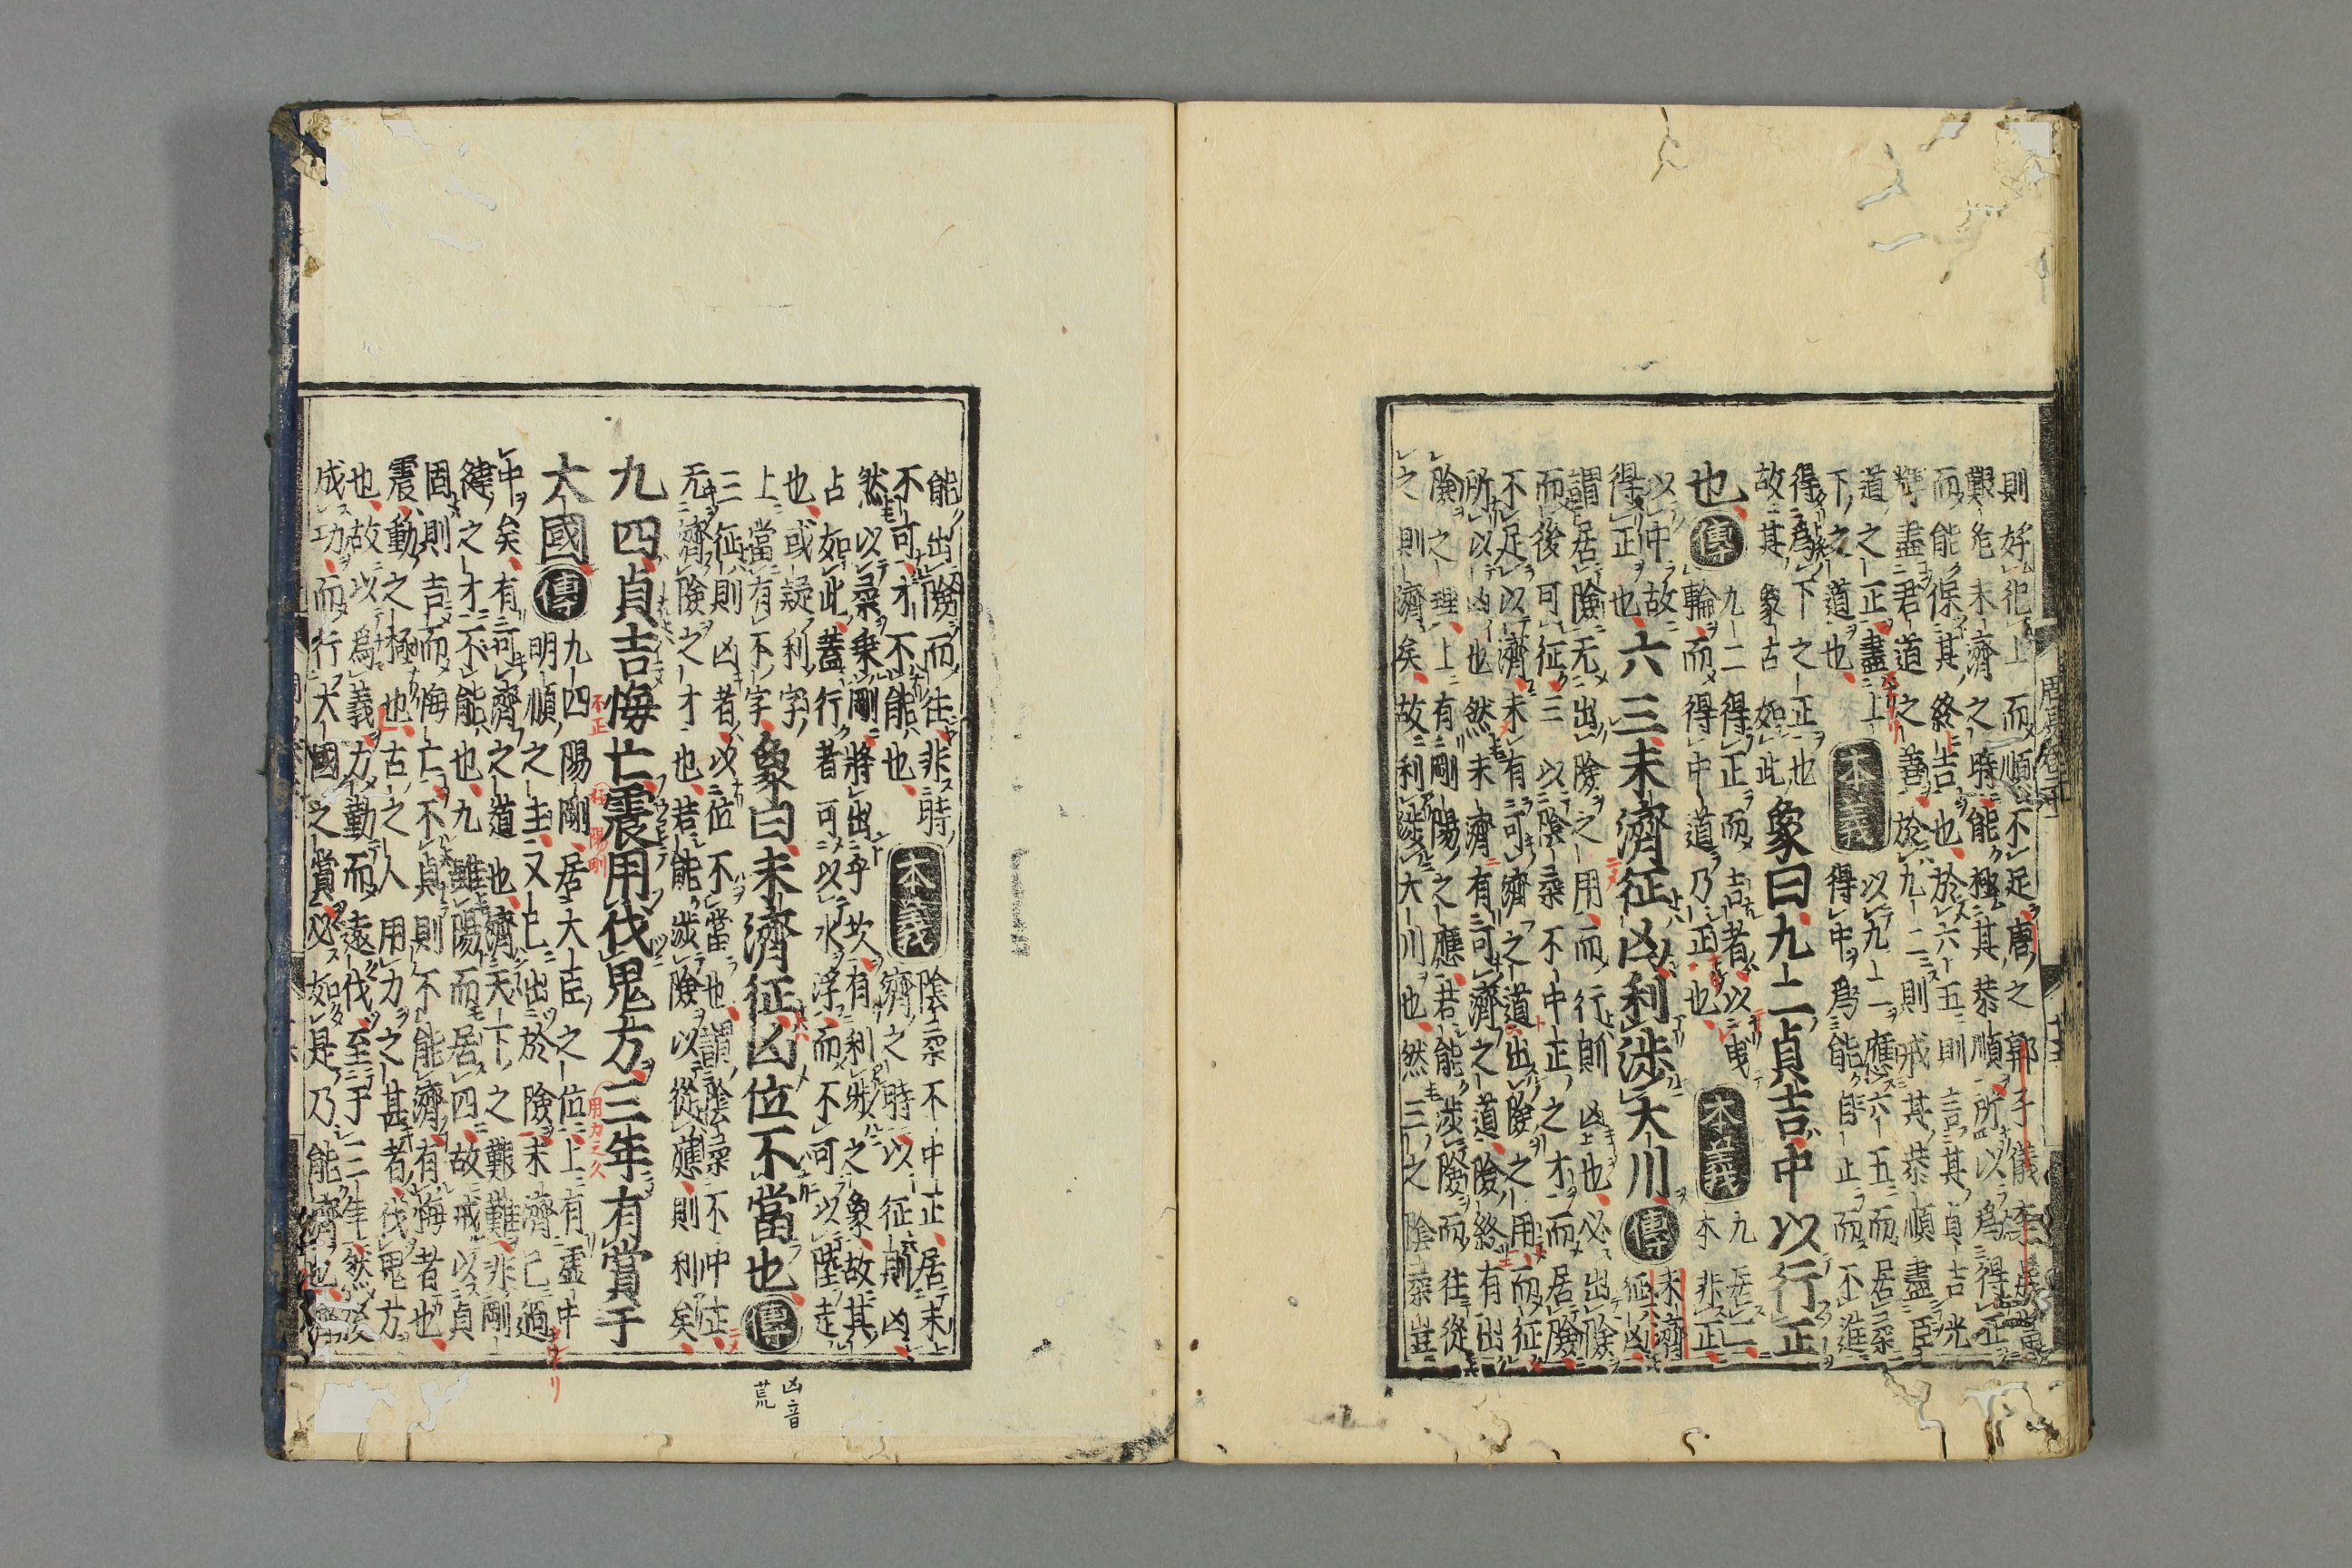 則好犯上而順不足唐之郭子儀李晟當
艱危未濟之時能極其恭順所以爲得正
而能保其終吉也於六五則言其貞吉光
輝盡君道之善於九二則戒其恭順盡臣
道之正盡上
下之道也 本義 以九二應六五而居柔
得中爲能自止而不進
得爲下之正也
故其象占如此 象曰九二貞吉中以行正
也 傳 九二得正而吉者以曳
輪而得中道乃正也 本義 九居二
本非正
以中故
得正也 六三未濟征凶利涉大川 傳 未濟
征凶
謂居險无出險之用而行則凶也必出險
而後可征三以陰柔不中正之才而居險
不足以濟未有可濟之道出險之用而征
所以凶也然未濟有可濟之道險終有出
險之理上有剛陽之應若能涉險而往從
之則濟矣故利涉大川也然三之陰柔豈
能出險而往非時
不可才不能也 本義 陰柔不中正居未
濟之時以征則凶
然以柔乘剛將出乎坎有利涉之象故其
占如此蓋行者可以水浮而不可以陸走
也或疑利字
上當有不字 象曰未濟征凶位不當也 傳
三征則凶者以位不當也謂陰柔不中正
无濟險之才也若能涉險以從應則利矣
九四貞吉悔亡震用伐鬼方三年有賞于
大國 傳 九四陽剛居大臣之位上有虛中
明順之主又已出於險未濟已過
中矣有可濟之道也濟天下之難難非剛
健之才不能也九雖陽而居四故戒以貞
固則吉而悔亡不貞則不能濟有悔者也
震動之極也古之人用力之甚者伐鬼方
也故以爲義力勤而遠伐至于三年然後
成功而行大國之賞必如是乃能濟也濟
不正
陽剛
用力之久
凶音
荒